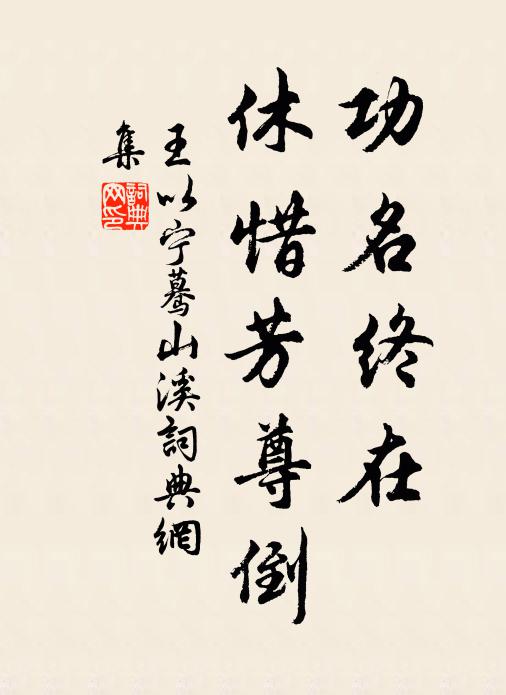 功名终在
休惜芳尊倒
王以宁蓦山溪詞典網
集
詞典
网印